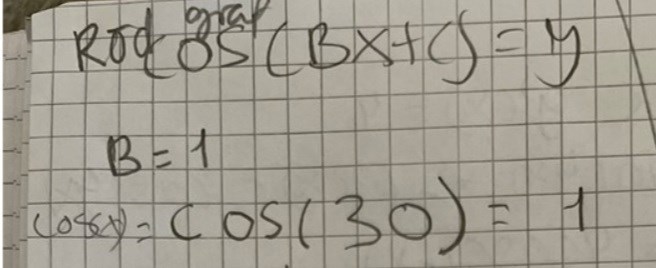 graf
cos(Bx+c) = y
B = 1
cos(x) = cos(30) = 1